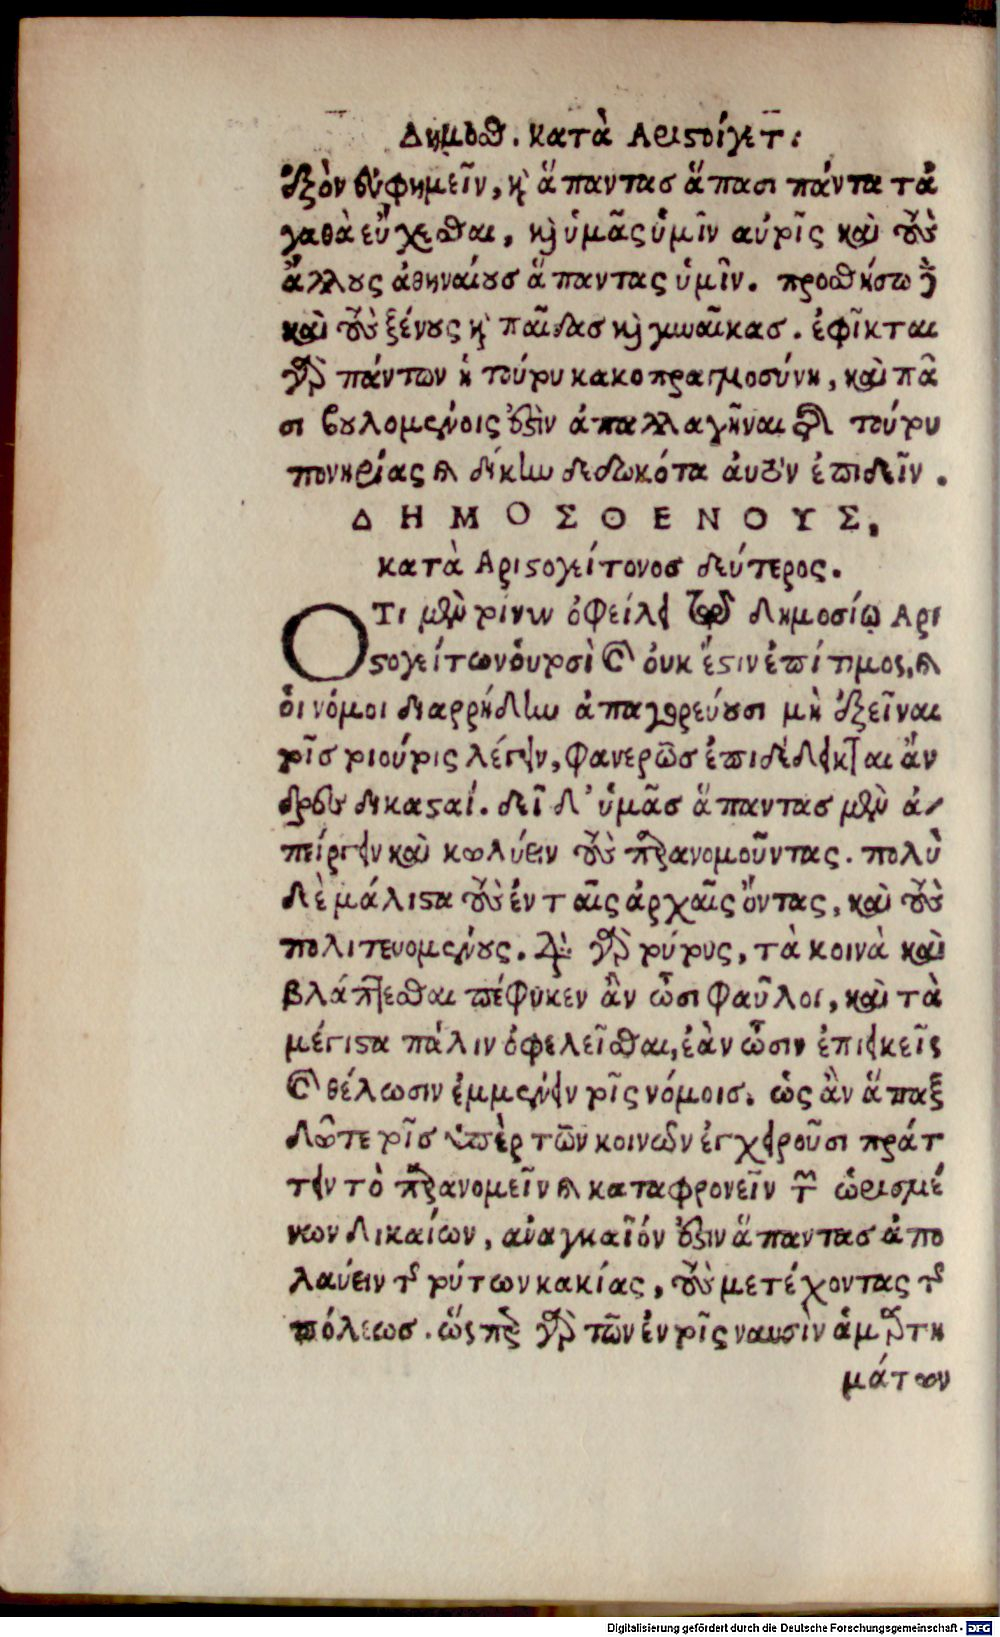 Δημοσθ. κατὰ Αριστοίγετ:
ἐξὸν εὐφημεῖν, κὶ ἅπαντασ ἅπασι πάντα τἀ
γαθὰ εὔχεσθαι, κὶ ὑμᾶς ὑμῖν αὐτοῖς καὶ τοὺς
ἄλλους ἀθηναίουσ ἅπαντας ὑμῖν. προσθήστω δὲ
καὶ τοὺς ξένους κὶ παῖδασ κὶ γυναῖκασ. ἐφῖκται
γὰρ πάντων ἡ τούτου κακοπραγμοσύνη, καὶ πᾶ
σι βουλομένοις ἐστὶν ἀπαλλαγῆναι τῆς τούτου
πονηρίας καὶ δίκην δεδωκότα ἀυτὸν ἐπιδεῖν.
ΔΗΜΟΣΘΕΝΟΥΣ,
κατὰ Αριστογείτονοσ δεύτερος.
ΟΤι μὲν τοίνυν ὀφείλει τῷ δημοσίῳ Αρι
στογείτων ὁυτοσὶ καὶ ὀυκ ἔστιν ἐπίτιμος, καὶ
ὁι νόμοι διαρρήδην ἀπαγορεύουσι μὴ ἐξεῖναι
τοῖσ τοιούτοις λέγειν, φανερῶσ ἐπιδέδεικται ἄν
δρες δικασταί. δεῖ δ' ὑμᾶσ ἅπαντασ μὲν ἀ-
πείργειν καὶ κωλύειν τοὺς παρανομοῦντας. πολὺ
δὲ μάλιστα τοὺς ἐν ταῖς ἀρχαῖς ὄντας, καὶ τοὺς
πολιτευομένους. διὰ γὰρ τούτους, τὰ κοινὰ καὶ
βλάπτεσθαι πέφυκεν ἂν ὦσι φαῦλοι, καὶ τὰ
μέγιστα πάλιν ὀφελεῖσθαι, ἐὰν ὦσιν ἐπιεικεῖς
καὶ θέλωσιν ἐμμένειν τοῖς νόμοισ. ὡς ἂν ἅπαξ
δῶτε τοῖσ ὑπὲρ τῶν κοινῶν ἐγχειροῦσι πράτ
τειν τὸ παρανομεῖν καὶ καταφρονεῖν τῶν ὡρισμέ
νων δικαίων, αναγκαῖόν ἐστιν ἅπαντασ ἀπο
λαύειν τῆς τούτων κακίας, τοὺς μετέχοντας τῆς
πόλεωσ. ὥσπερ γὰρ τῶν ἐν τοῖς ναυσὶν ἁμαρτη
μάτων
Digitalisierung gefördert durch die Deutsche Forschungsgemeinschaft - DFG